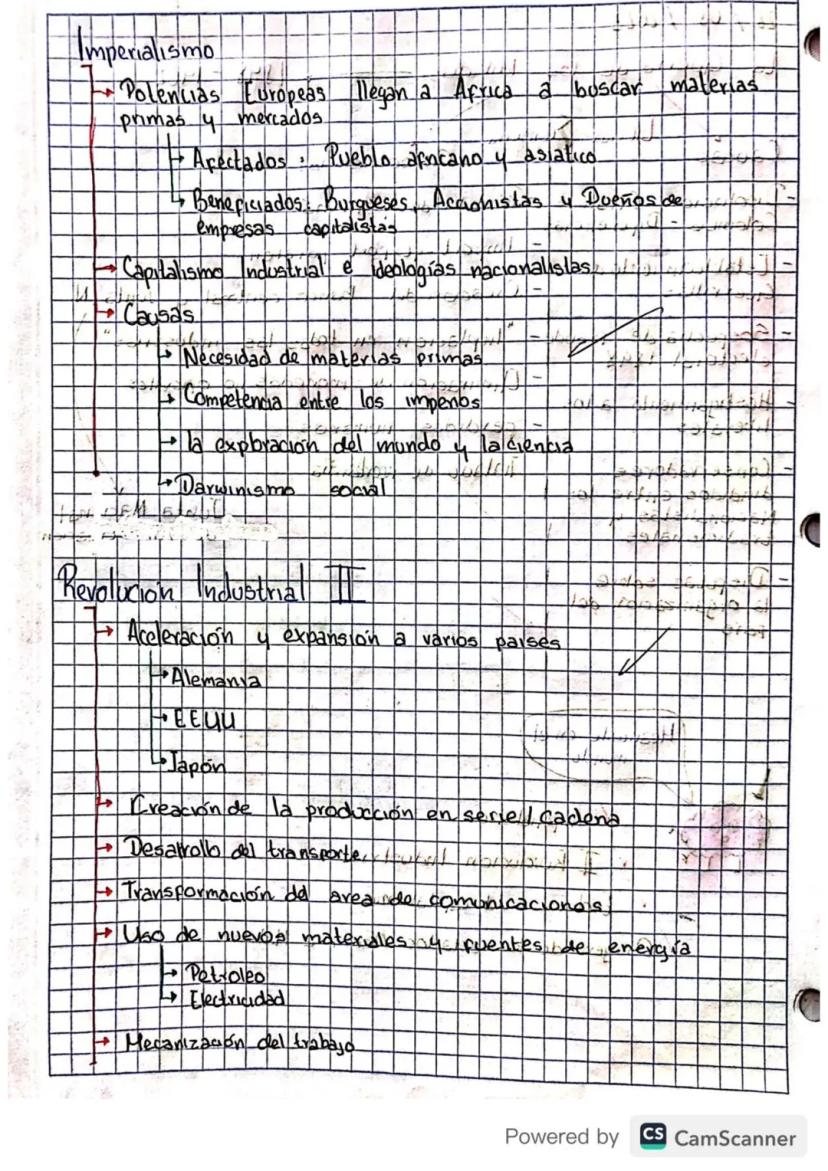 Imperialismo
→ Potencias Européas llegan a África a buscar materias
primas y mercados
→ Afectados: Pueblo africano y asiatico
→ Beneficiados: Burgueses, Accionistas y Dueños de
empresas capitalistas
→ Capitalismo Industrial e ideologías nacionalistas
→ Causas
→ Necesidad de materias primas
→ Competencia entre los imperios
→ la exploración del mundo y la ciencia
→ Darwinismo social
Revolución Industrial II
→ Aceleración y expansión a varios paises
→ Alemania
→ EEUU
→ Japón
→ Creación de la producción en serie/cadena
→ Desarrollo del transporte
→ Transformación del area de comunicaciones
→ Uso de nuevos materiales y fuentes de energía
→ Petroleo
→ Electricidad
→ Mecanización del trabajo
Powered by CS CamScanner